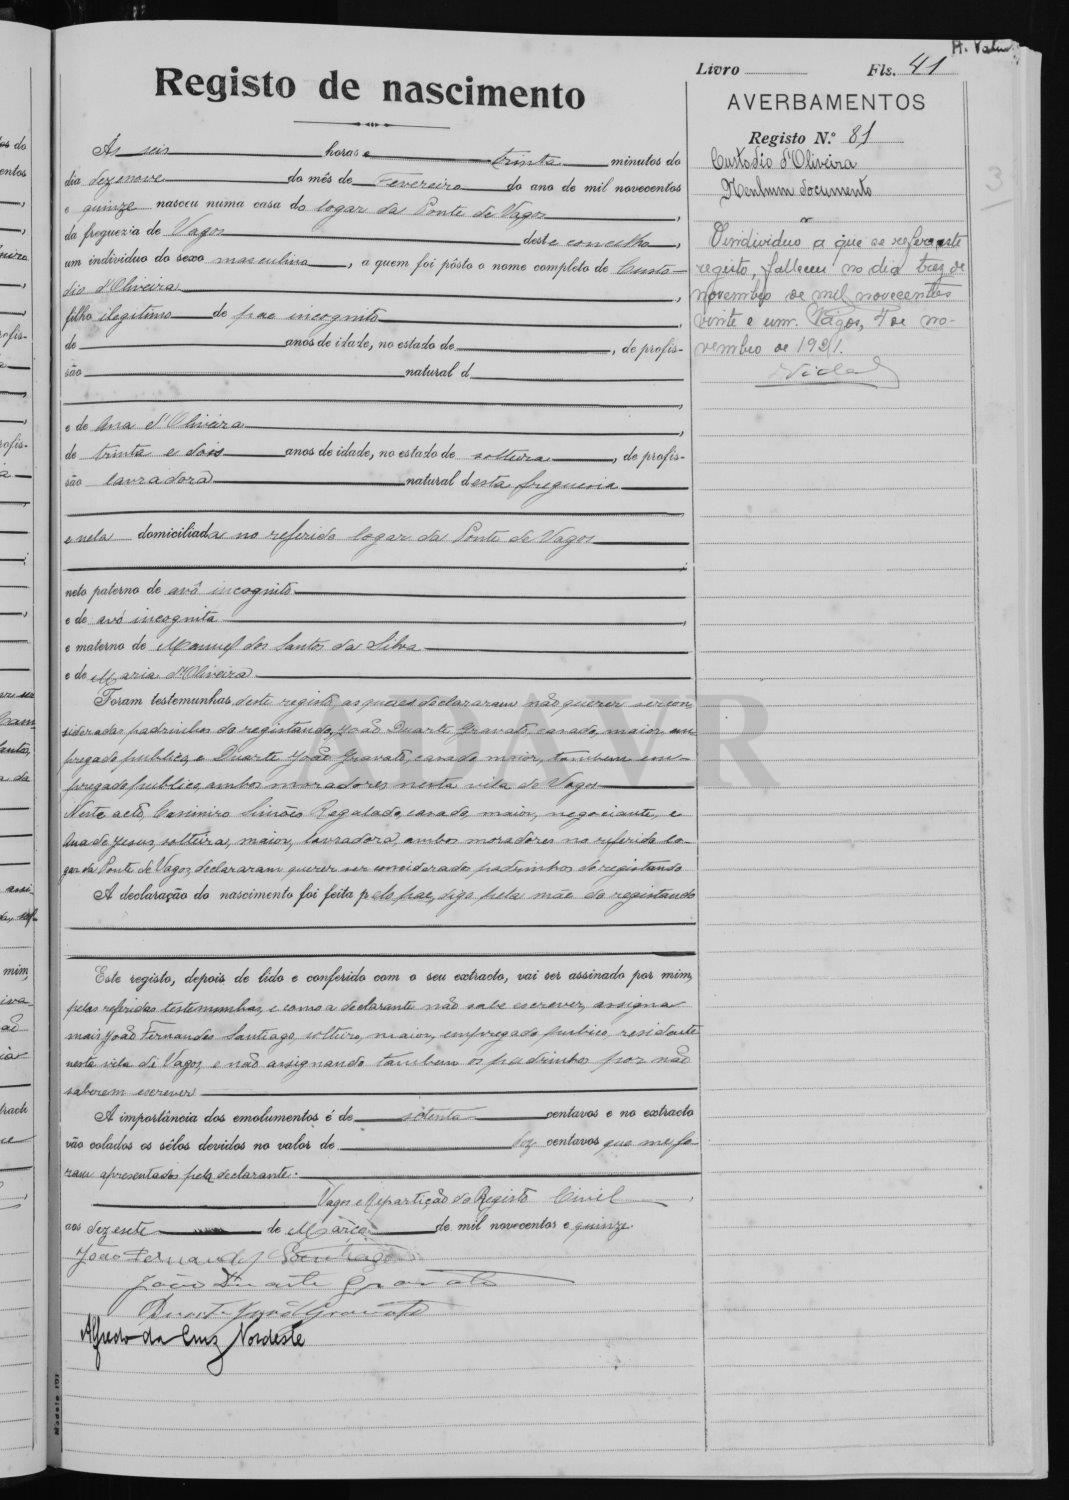 Registo de nascimento
Ás seis horas e trinta minutos do
dia dezenove do mês de Fevereiro do ano de mil novecentos
e quinze nasceu numa casa do logar da Ponte de Vagos,
da freguezia de Vagos deste concelho,
um individuo do sexo masculino, a quem foi pôsto o nome completo de Custo-
dio d'Oliveira,
filho ilegitimo de pae incognito,
de anos de idade, no estado de, de profis-
são natural d
e de Ana d'Oliveira,
de trinta e dois anos de idade, no estado de solteira, de profis-
são lavradora natural desta freguesia
e nela domiciliada no referido logar da Ponte de Vagos
neto paterno de avô incognito
e de avó incognita,
e materno de Manuel dos Santos da Silva
e de Maria d'Oliveira
Foram testemunhas deste registo, as quaes declararam não querer ser con
siderados padrinhos do registando, João Duarte Gravato, casado, maior, em
pregado publico, e Duarte João Gravato, casado maior, tambem em-
pregado publico, ambos moradores nesta vila de Vagos
Neste acto, Casimiro Simões Regalado, casado, maior, negociante, e
Ana de Jesus, solteira, maior, lavradora, ambos moradores no referido lo-
gar da Ponte de Vagos, declararam querer ser considerados padrinhos do registando
A declaração do nascimento foi feita pelo pae, digo pela mãe do registando
Este registo, depois de lido e conferido com o seu extracto, vai ser assinado por mim,
pelas referidas testemunhas, e como a declarante não sabe escrever, assigna
mais João Fernandes Santiago, solteiro, maior, empregado publico, residente
nesta vila de Vagos, e não assignando tambem os padrinhos por não
saberem escrever
A importância dos emolumentos é de setenta centavos e no extracto
vão colados os sêlos devidos no valor de dez centavos que me fo-
ram apresentados pela declarante.
Vagos e Repartição do Registo Civil,
aos dezesete de Março de mil novecentos e quinze.
João Fernandes Santiago
João Duarte Gravato
Duarte João Gravato
Alfredo da Cruz Nordeste
Modelo 101
Livro Fls. 41
AVERBAMENTOS
Registo N.º 81
Custodio d'Oliveira
Nenhum documento
O individuo a que se refere este
registo, falleceu no dia trez de
novembro de mil novecentos
vinte e um. Vagos, 4 de no-
vembro de 1921.
3
ADAVR